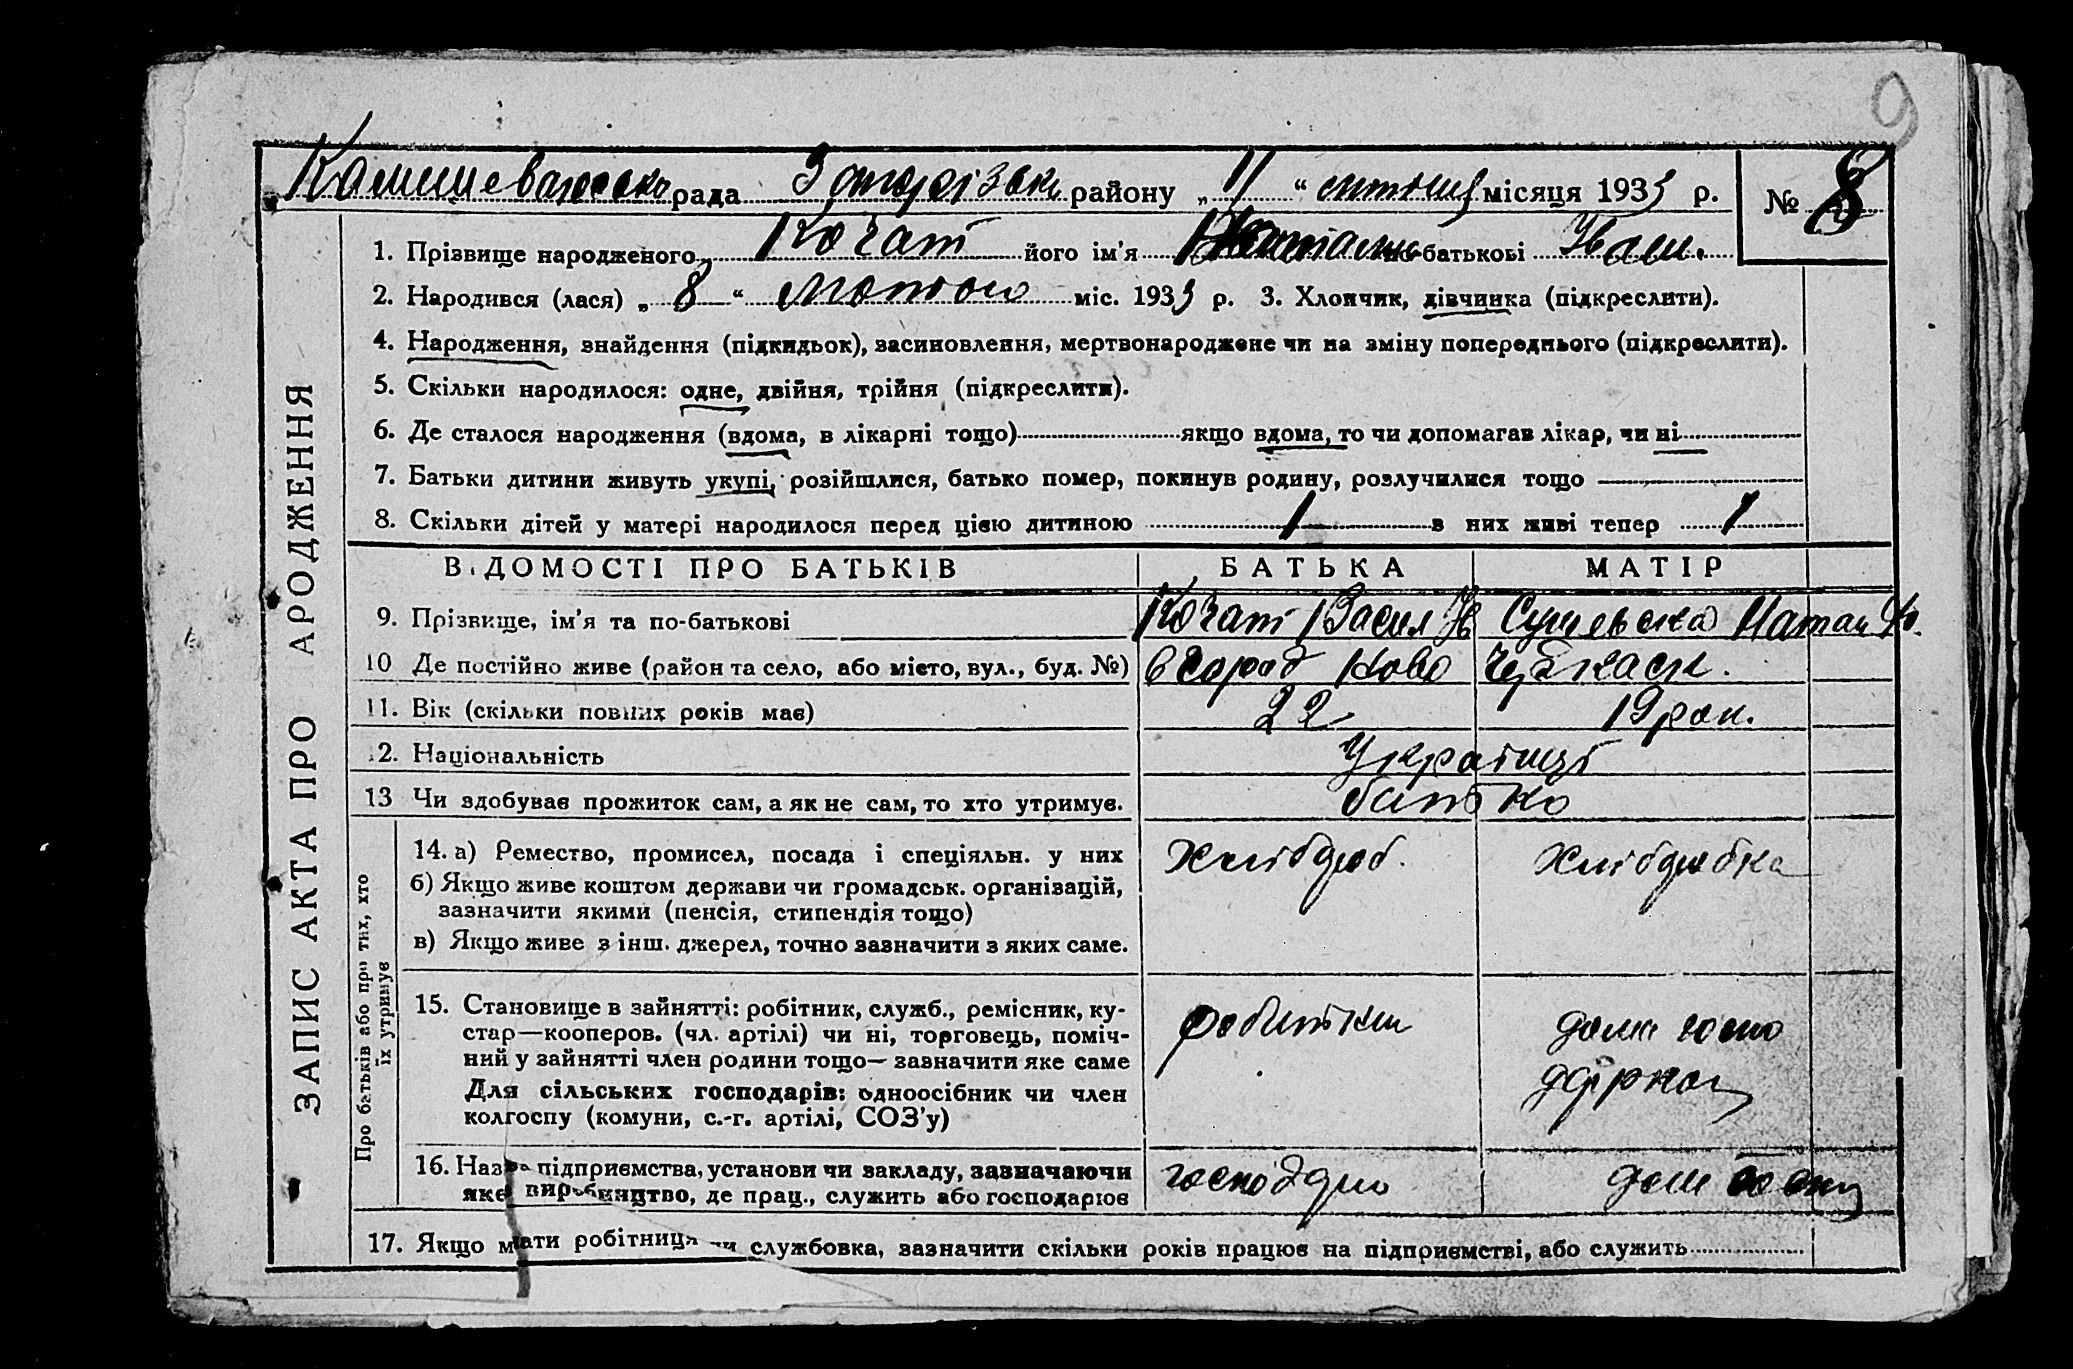 9
рада района „11“ місяця 1933 р. № 8
1. Прізвище народженого Кочат його ім'я по-батькові Іван.
2. Народився (лася) „8“ лютого міс. 1933 р. 3. Хлопчик, дівчинка (підкреслити).
4. Народження, знайдення (підкидьок), засиновлення, мертвонароджене чи на зміну попереднього (підкреслити).
5. Скільки народилося: одне, двійня, трійня (підкреслити).
6. Де сталося народження (вдома, в лікарні тощо) якщо вдома, то чи допомагав лікар, чи ні
7. Батьки дитини живуть укупі, розійшлися, батько помер, покинув родину, розлучилися тощо
8. Скільки дітей у матері народилося перед цією дитиною 1 з них живі тепер 1
ЗАПИС АКТА ПРО АРОДЖЕННЯ
ВІДОМОСТІ ПРО БАТЬКІВ БАТЬКА МАТІР
9. Прізвище, ім'я та по-батькові Кочат Васил Ів
10 Де постійно живе (район та село, або місто, вул., буд. №) в город Ново Черкаси.
11. Вік (скільки повних років має) 22 19 рок.
12. Національність Українці
13 Чи здобуває прожиток сам, а як не сам, то хто утримує. батько
Про батьків або про тих, хто їх утримує
14. а) Ремество, промисел, посада і спеціяльн. у них хлібороб. хліборобка
б) Якщо живе коштом держави чи громадськ. організацій,
зазначити якими (пенсія, стипендія тощо)
в) Якщо живе з інш. джерел, точно зазначити з яких саме.
15. Становище в зайнятті: робітник, служб., ремісник, ку-
стар—кооперов. (чл. артілі) чи ні, торговець, поміч-
ний у зайнятті член родини тощо— зазначити яке саме
Для сільських господарів: одноосібник чи член
колгоспу (комуни, с.-г. артілі, СОЗ'у)
16. Назва підприємства, установи чи закладу, зазначаючи
яке виробництво, де прац., служить або господарює
17. Якщо мати робітниця чи службовка, зазначити скільки років працює на підприємстві, або служить